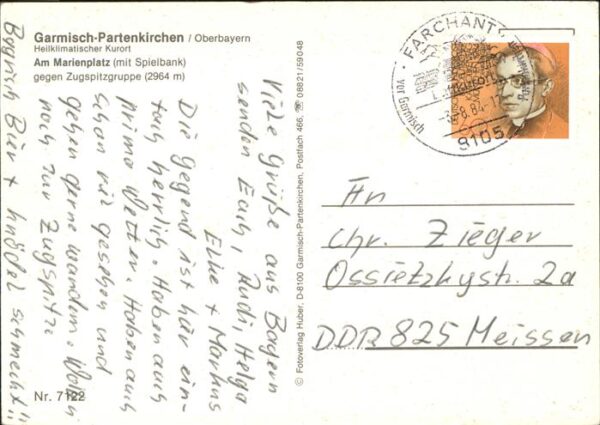 Garmisch-Partenkirchen / Oberbayern
Heilklimatischer Kurort
Am Marienplatz (mit Spielbank)
gegen Zugspitzgruppe (2964 m)
Viele Grüße aus Bayern
senden Euch, Rudi, Helga
Elke + Markus
Die Gegend ist hier ein-
fach herrlich. Haben auch
prima Wetter. Haben auch
schon viel gesehen und
gehen gerne wandern. Wollen
noch zur Zugspitze
Bayrisch Bier + Knödel schmeckt!!
Nr. 7122
© Fotoverlag Huber, D-8100 Garmisch-Partenkirchen, Postfach 466, ☎ 08821/59048
FARCHANT
vor Garmisch
8105
An
Chr. Zieger
Ossietzkystr. 2a
DDR 825 Meissen